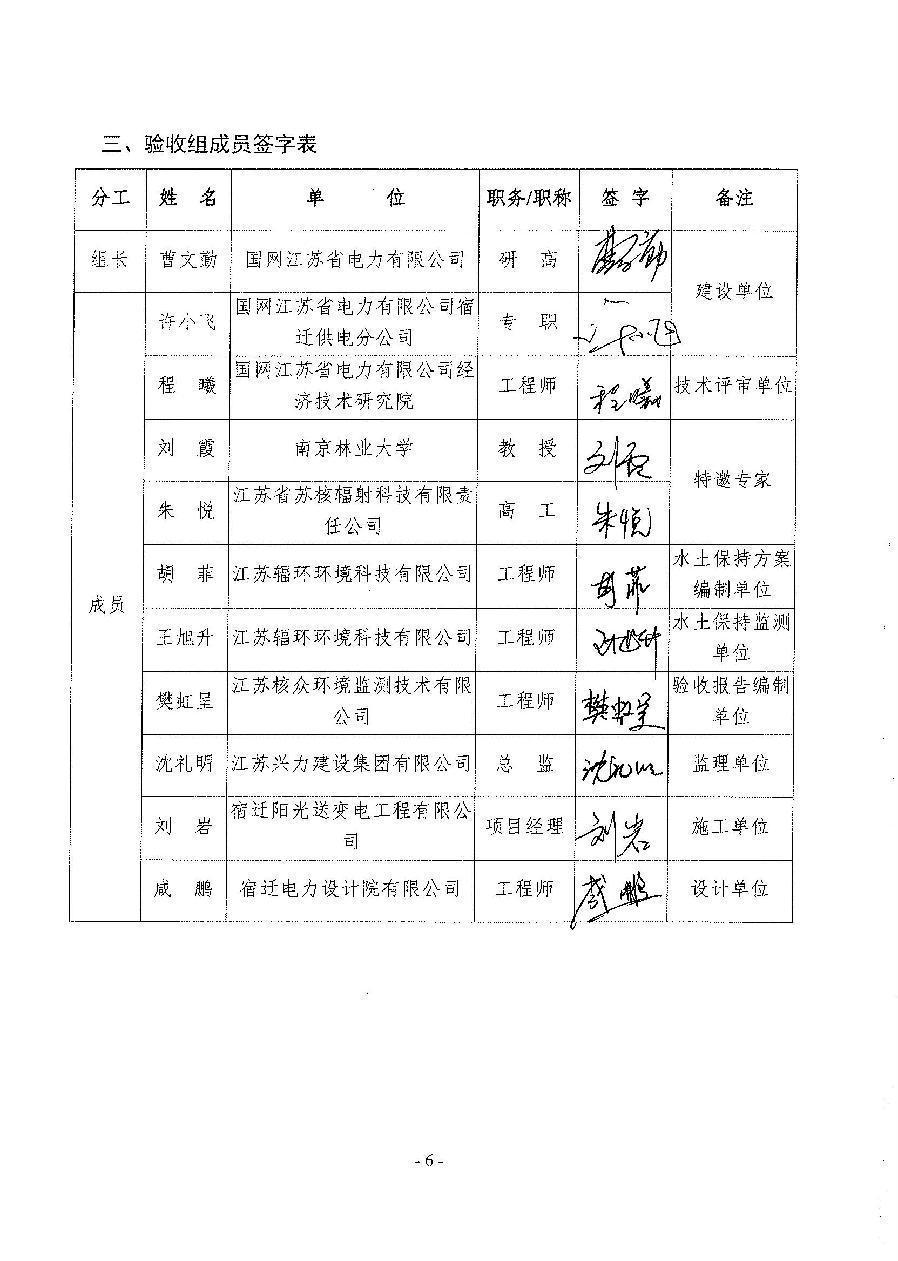 三、验收组成员签字表
分工 姓 名 单 位 职务/职称 签 字 备注
组长 曹文勤 国网江苏省电力有限公司 研 高 建设单位
许小飞 国网江苏省电力有限公司宿
迁供电分公司 专 职
程 曦 国网江苏省电力有限公司经
济技术研究院 工程师 程曦 技术评审单位
刘 霞 南京林业大学 教 授 刘霞 特邀专家
朱 悦 江苏省苏核辐射科技有限责
任公司 高 工 朱悦
成员
胡 菲 江苏辐环环境科技有限公司 工程师 胡菲 水土保持方案
编制单位
王旭升 江苏辐环环境科技有限公司 工程师 水土保持监测
单位
樊虹呈 江苏核众环境监测技术有限
公司 工程师 樊虹呈 验收报告编制
单位
沈礼明 江苏兴力建设集团有限公司 总 监 沈礼明 监理单位
刘 岩 宿迁阳光送变电工程有限公
司 项目经理 刘岩 施工单位
咸 鹏 宿迁电力设计院有限公司 工程师 咸鹏 设计单位
- 6 -